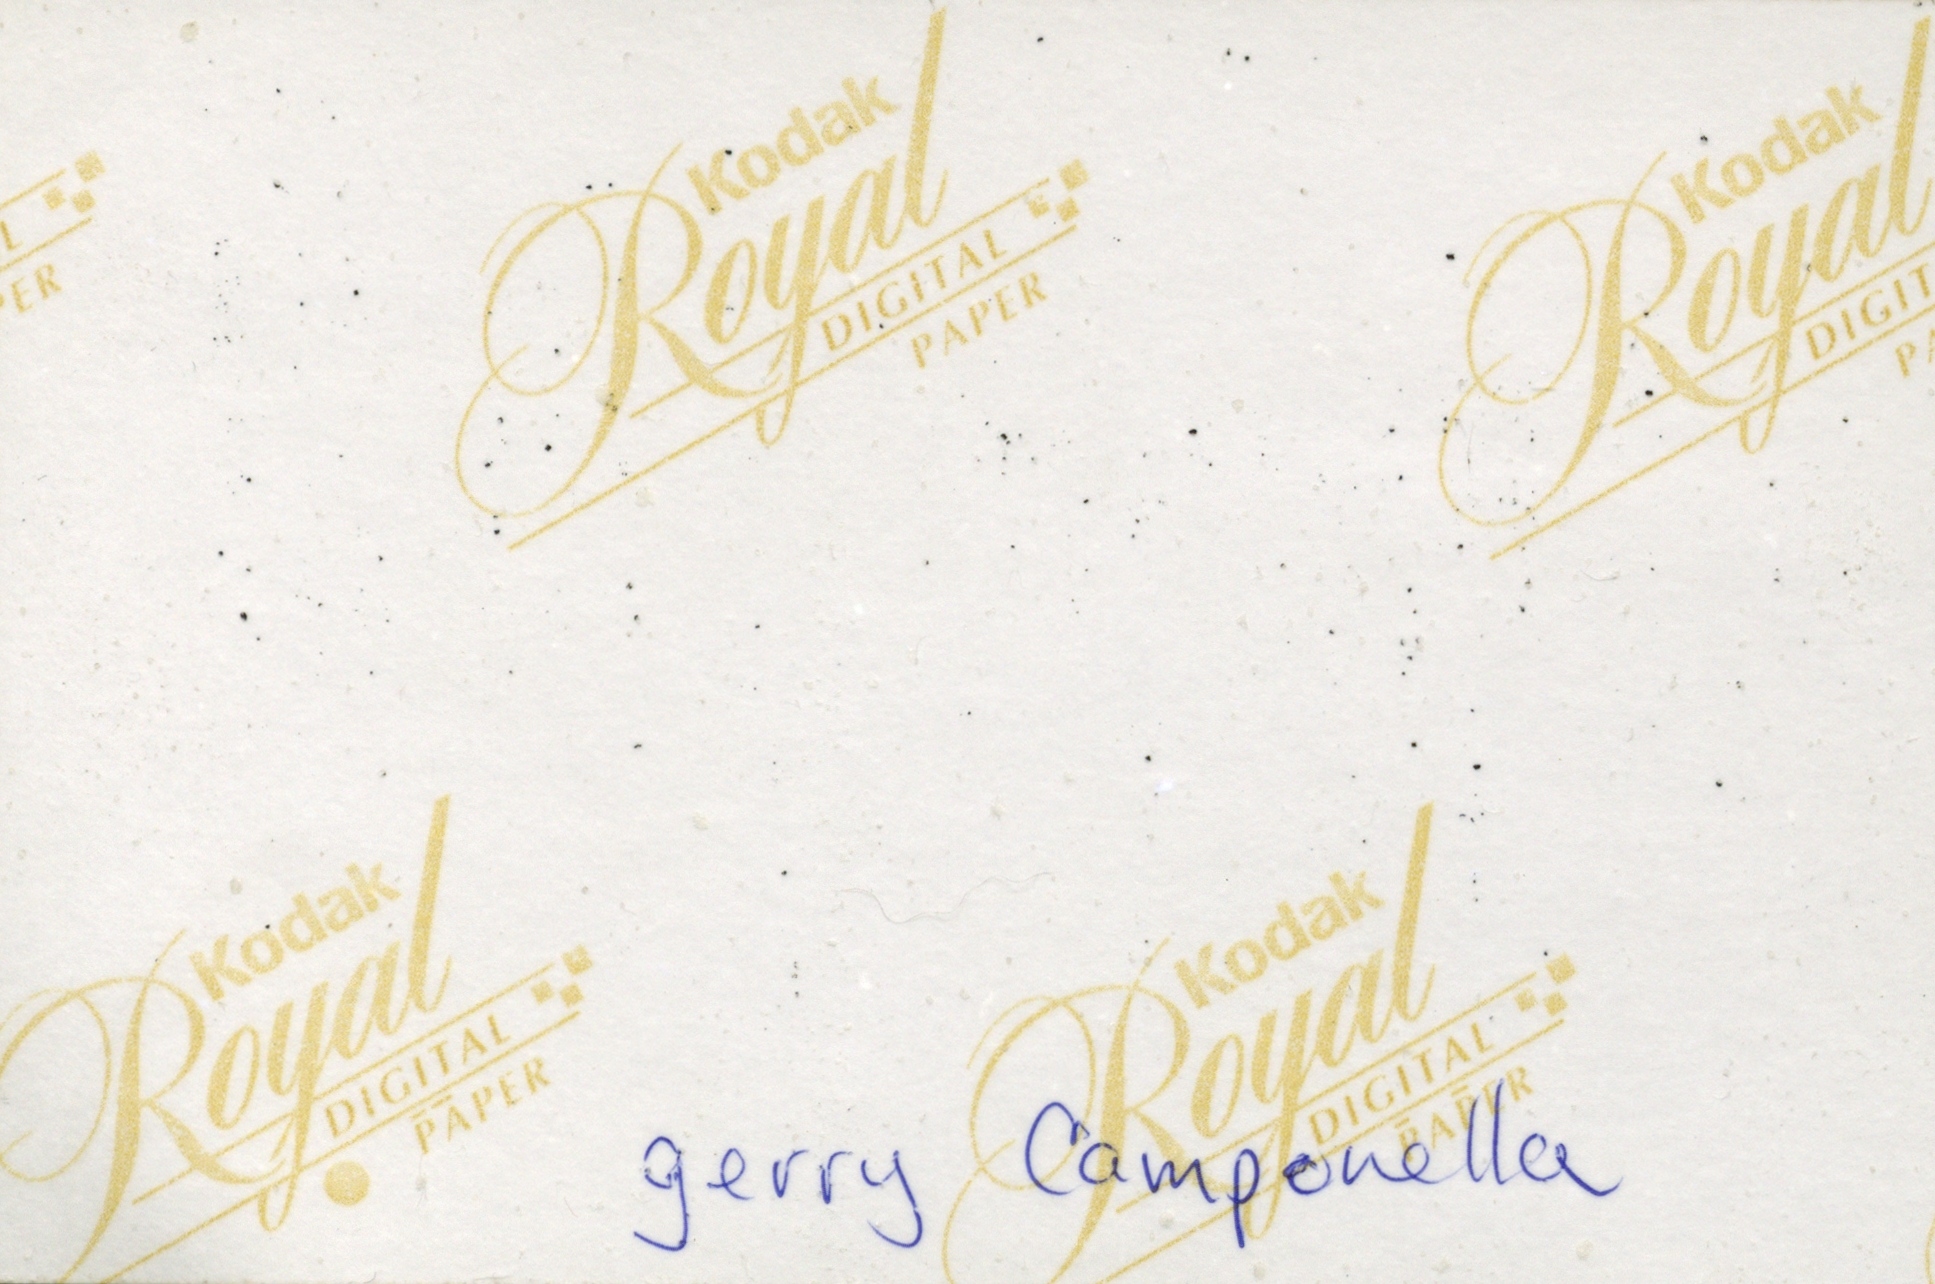 Kodak
Royal
DIGITAL
PAPER
Kodak
Royal
DIGIT
PA
L
PER
Kodak
Royal
DIGITAL
PAPER
Kodak
Royal
DIGITAL
PAPER
gerry Camponella